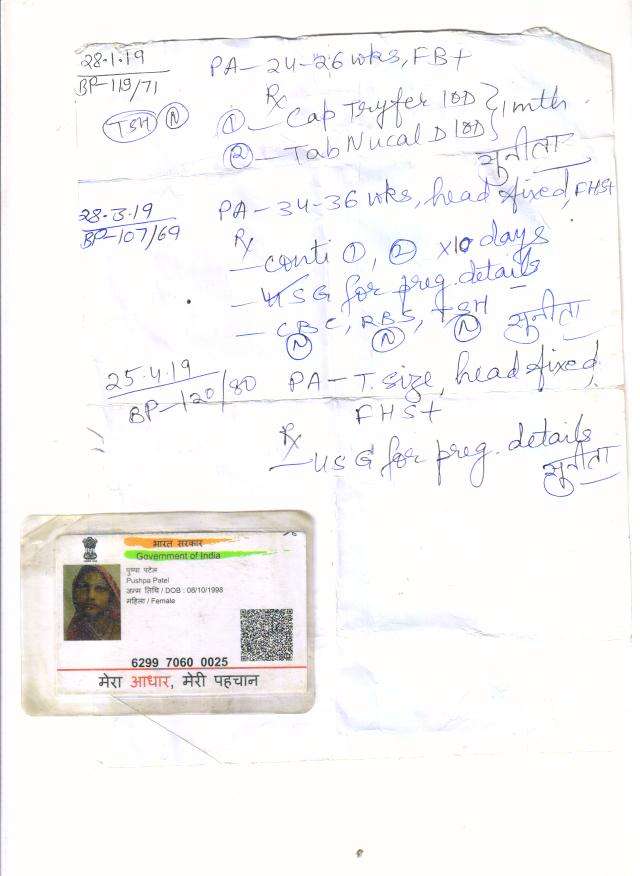 28.1.19
BP-119/71
PA-24-26 wks, FB+
Rx
TSH N
① - Cap Tryfer 1OD } 1 mth.
② - Tab Nucal D 1OD
सुनीता
28.3.19
BP-107/69
PA-34-36 wks, head fixed, FHS+
Rx
- conti ①, ② x10 days
- USG for preg. details
- CBC, RBS, TSH
N N N
सुनीता
25.4.19
BP-120/80
PA-T. size, head fixed,
FHS+
Rx
- USG for preg. details
सुनीता
भारत सरकार
Government of India
पुष्पा पटेल
Pushpa Patel
जन्म तिथि / DOB : 08/10/1998
महिला / Female
6299 7060 0025
मेरा आधार, मेरी पहचान